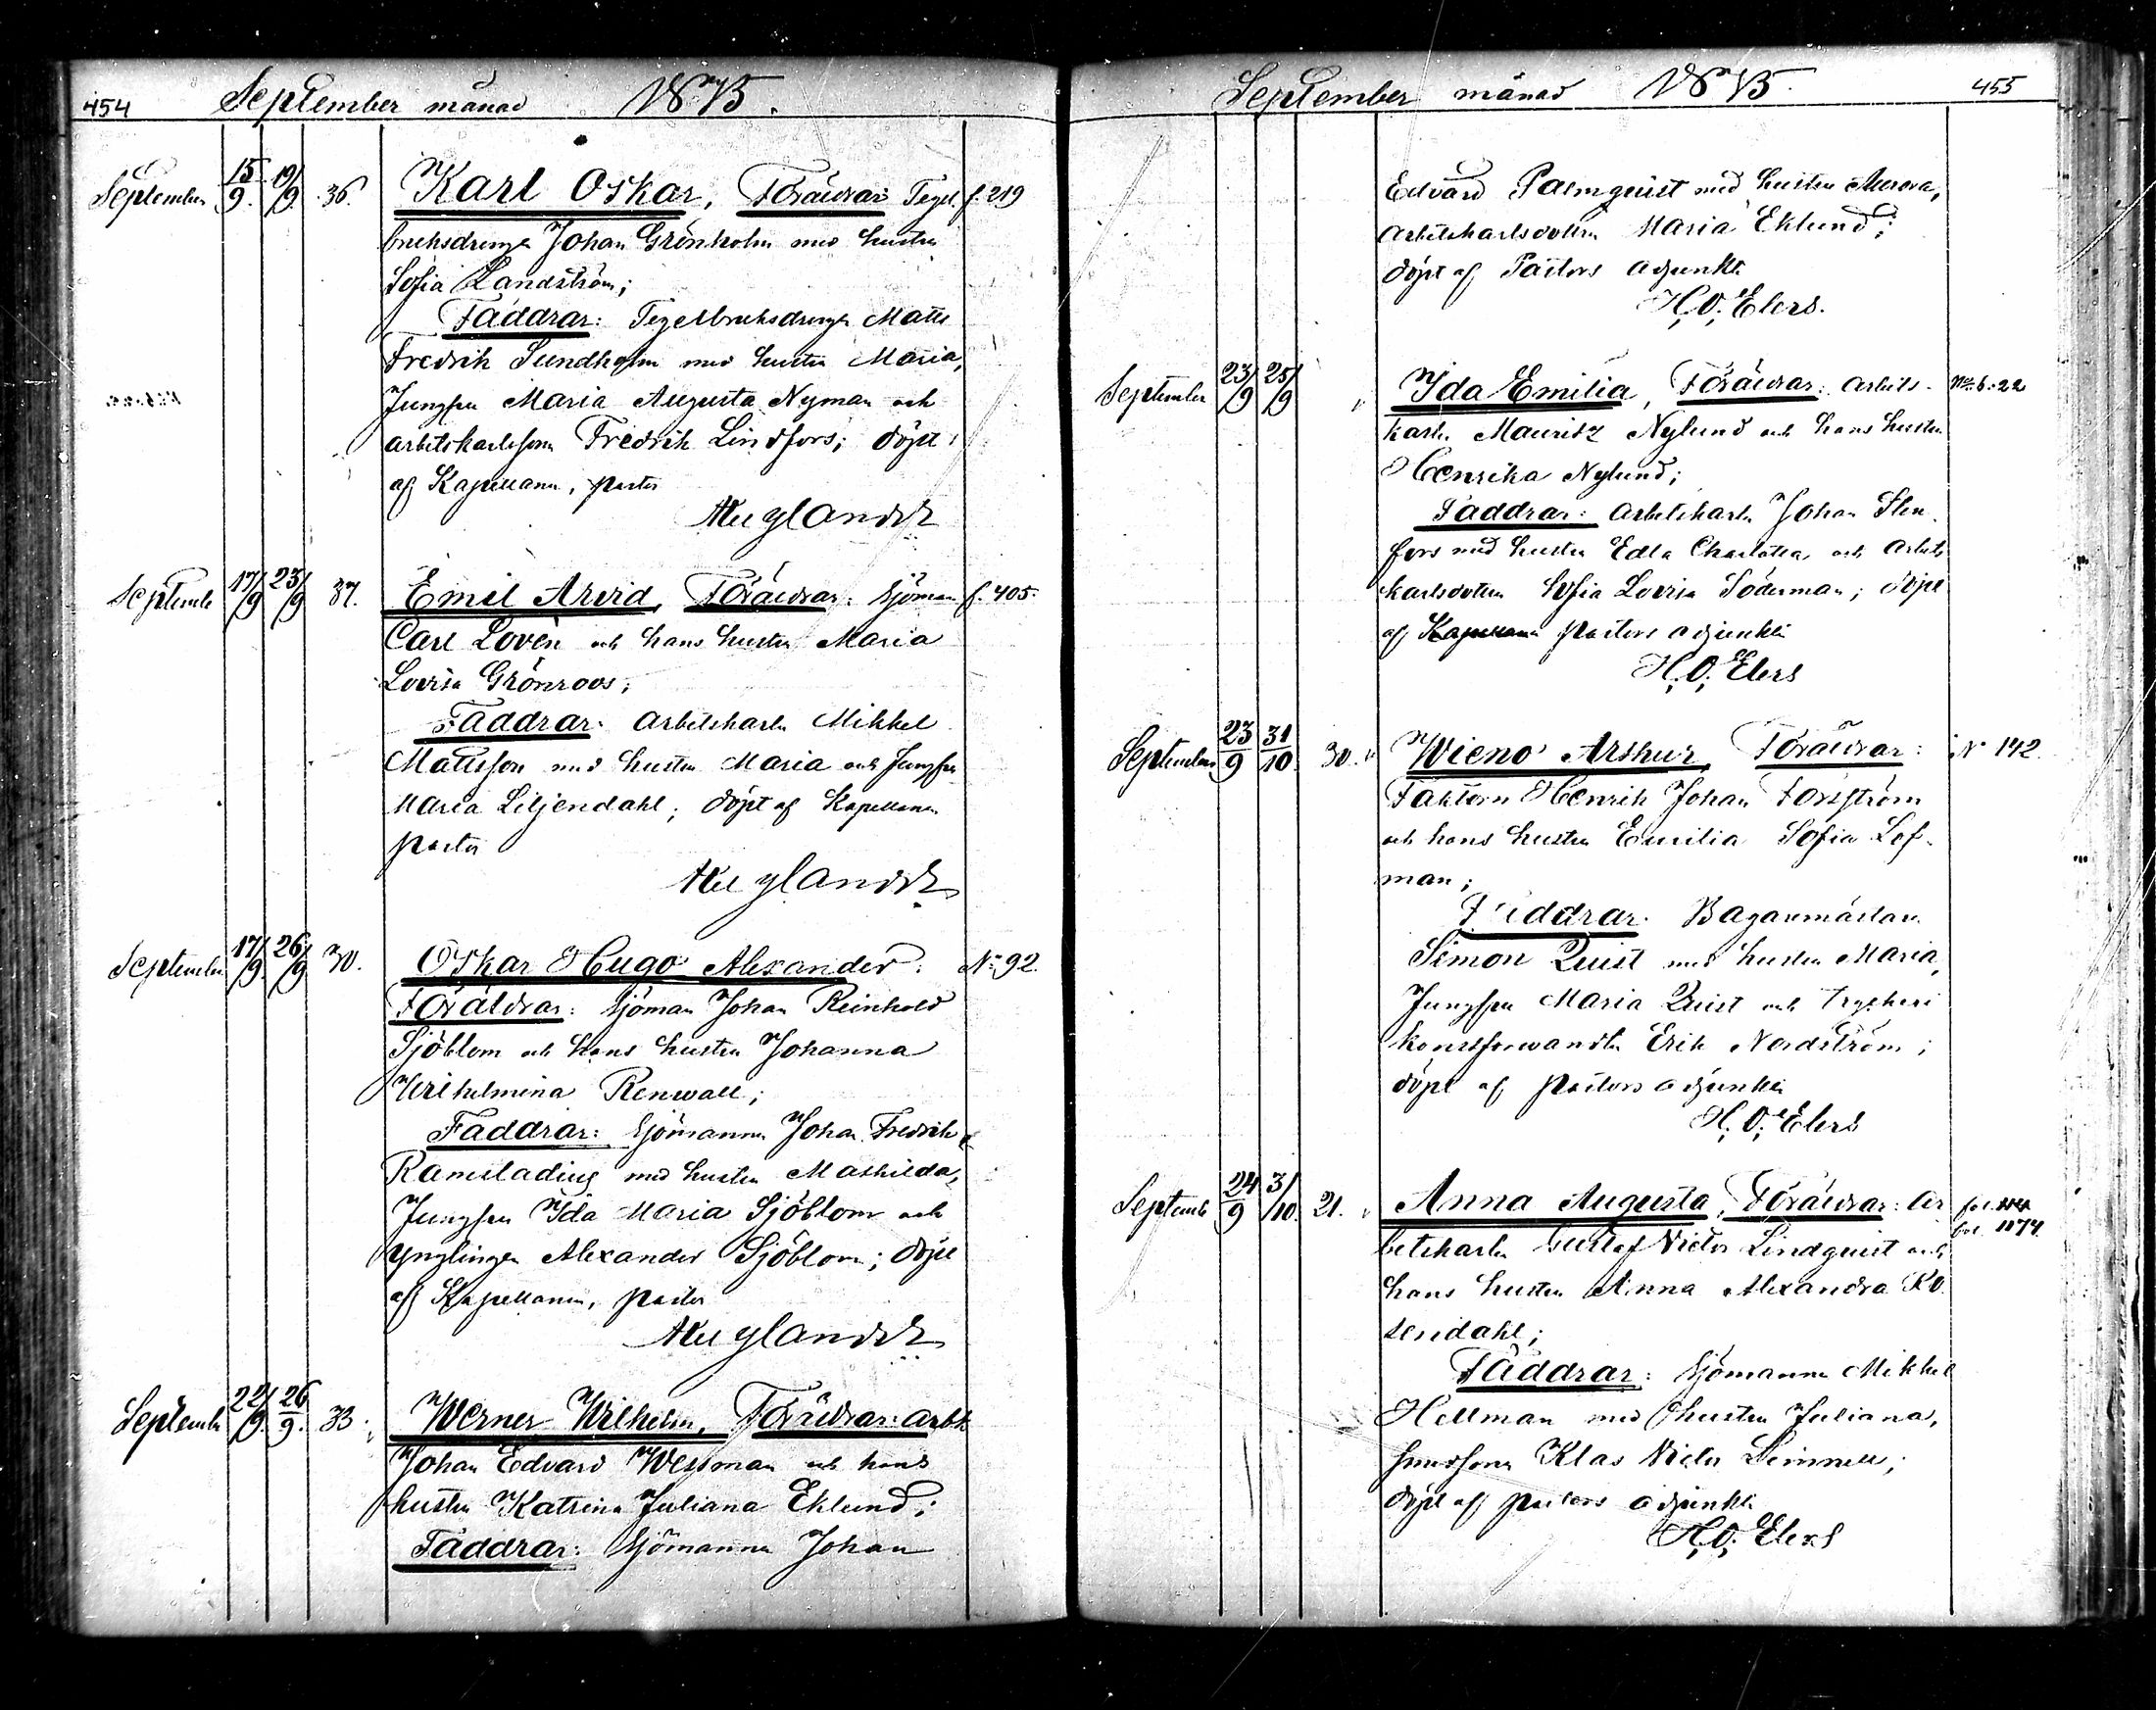 454 September månad 1875.
September 15/9. 19/9. 36. Karl Oskar, Föräldrar Tegel- f. 219
bruksdrengen Johan Grönholm med hustru
Sofia Landström;
Faddrar: Tegelbruksdrengen Matts
Fredrik Sundholm med hustru Maria,
Jungfru Maria Augusta Nyman och
arbetskarlssonen Fredrik Lindfors; döpt
af Kapellanen, pastor
September 17/9 23/9 37. Emil Arvid, Föräldrar: Sjöman f. 405.
Carl Lovén och hans hustru Maria
Lovisa Grönroos;
Faddrar: Arbetskarlen Mikkel
Mattsson med hustru Maria och Jungfru
Maria Liljendahl; döpt af Kapellanen
pastor
September 17/9. 26/9 30. Oskar Hugo Alexander. No 92.
Föräldrar: Sjöman Johan Reinhold
Sjöblom och hans hustru Johanna
Wilhelmina Renwall;
Faddrar: Sjömannen Johan Fredrik
med hustru Mathilda,
Jungfru Ida Maria Sjöblom och
Ynglingen Alexander Sjöblom; döpt
af Kapellanen, pastor
September 22/9. 26/9. 33. Werner Wilhelm, Föräldrar: arbk
Johan Edvard Wessman och hans
hustru Katrina Juliana Eklund;
Faddrar: Sjömannen Johan
September månad 1875. 455
Edvard Palmquist med hustru
arbetskarlsdottren Maria Eklund;
döpt af Pastors adjunkten
H. O. Elers.
September 23/9 25/9 " Ida Emilia, Föräldrar: arbets- No b. 22
karlen Mauritz Nylund och hans hustru
Henrika Nylund;
Faddrar: arbetskarlen Johan Sten-
fors med hustru Edla Charlotta, och arbets
karlsdottren Sofia Lovisa Söderman; döpt
af Kapellanen pastors adjunkten
H. O. Elers
September 23/9 31/10 30. " Wieno Arthur, Föräldrar: No 142.
Faktorn Henrik Johan Forsström
och hans hustru Emilia Sofia Lof-
man;
Faddrar. Bagaremästaren
Simon Quist med hustru Maria,
Jungfru Maria Quist och tryckeri
konstförwandten Erik Nordström;
döpt af pastors adjunkten
H. O. Elers
September 24/9 3/10. 21. " Anna Augusta, Föräldrar: Ar fol.
fol. 1174.
betskarlen Gustaf Victor Lindquist och
hans hustru Anna Alexandra Ro
sendahl;
Faddrar: Sjömannen Mikkel
Hellman med hustru Juliana,
Klas Victor
döpt af pastors adjunkten
H. O. Elers